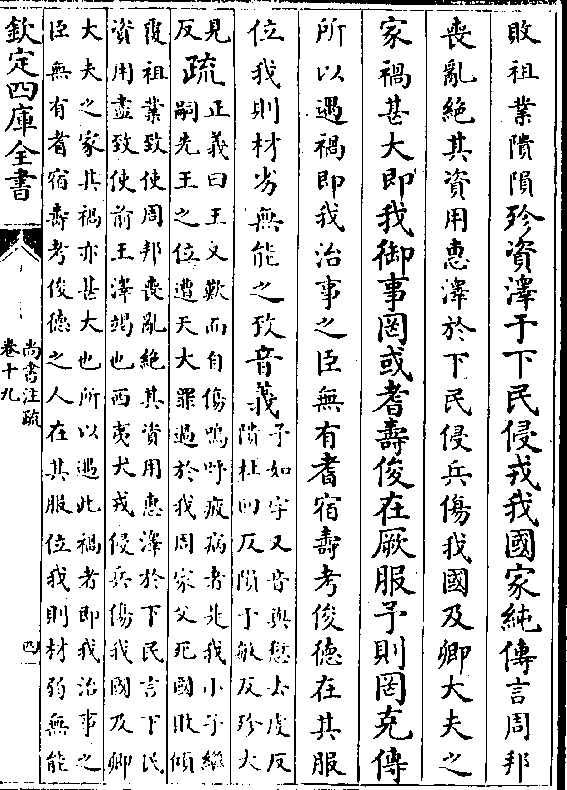 敗祖業隤隕殄資澤于下民侵戎我國家純傳言周邦
喪亂絶其資用惠澤於下民侵兵傷我國及卿大夫之
家禍甚大即我御事罔或耆壽俊在厥服予則罔克傳
所以遇禍即我治事之臣無有耆宿壽考俊德在其服
位我則材劣無能之致音義
予如字又音與愆去虔反
隤杜回反隕于敏反殄大
見
反
疏
正義曰王又歎而自傷嗚呼疲病者是我小子繼
嗣先王之位遭天大罪過於我周家父死國敗傾
覆祖業致使周邦喪亂絶其資用惠澤於下民言下民
資用盡致使前王澤竭也西夷犬戎侵兵傷我國及卿
大夫之家其禍亦甚大也所以遇此禍者即我治事之
臣無有耆宿壽考俊德之人在其服位我則材弱無能
欽定四庫全書
尚書注疏
卷十九
四